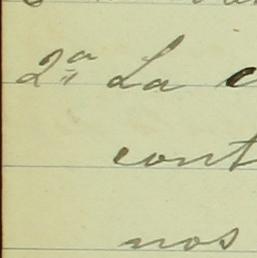 2ª La c
cont
nos